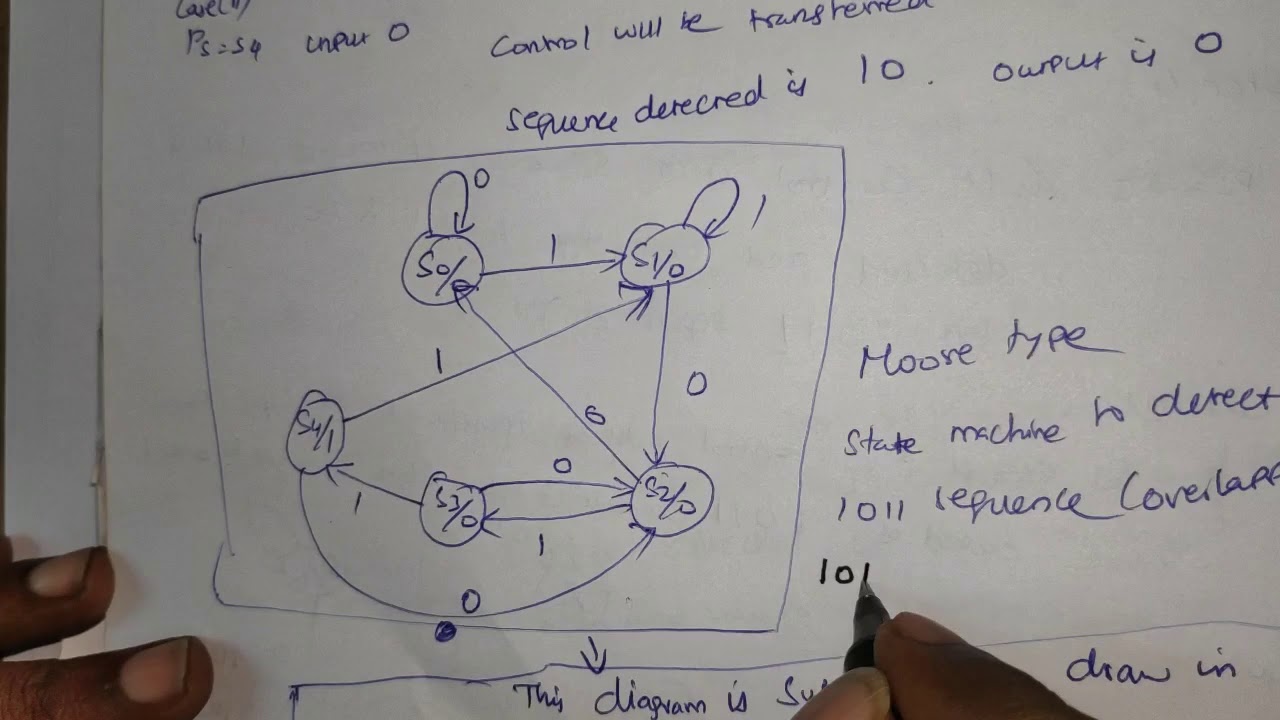 Case(ii)
PS=S4 input 0 Control will be transferred
Sequence detected is 10. output is 0
0
1
1
S0/0
S1/0
1
0
0
S4/1
0
S3/0
S2/0
1
1
0
Moore type
State machine to detect
1011 sequence (overlapp
101
This diagram is draw in